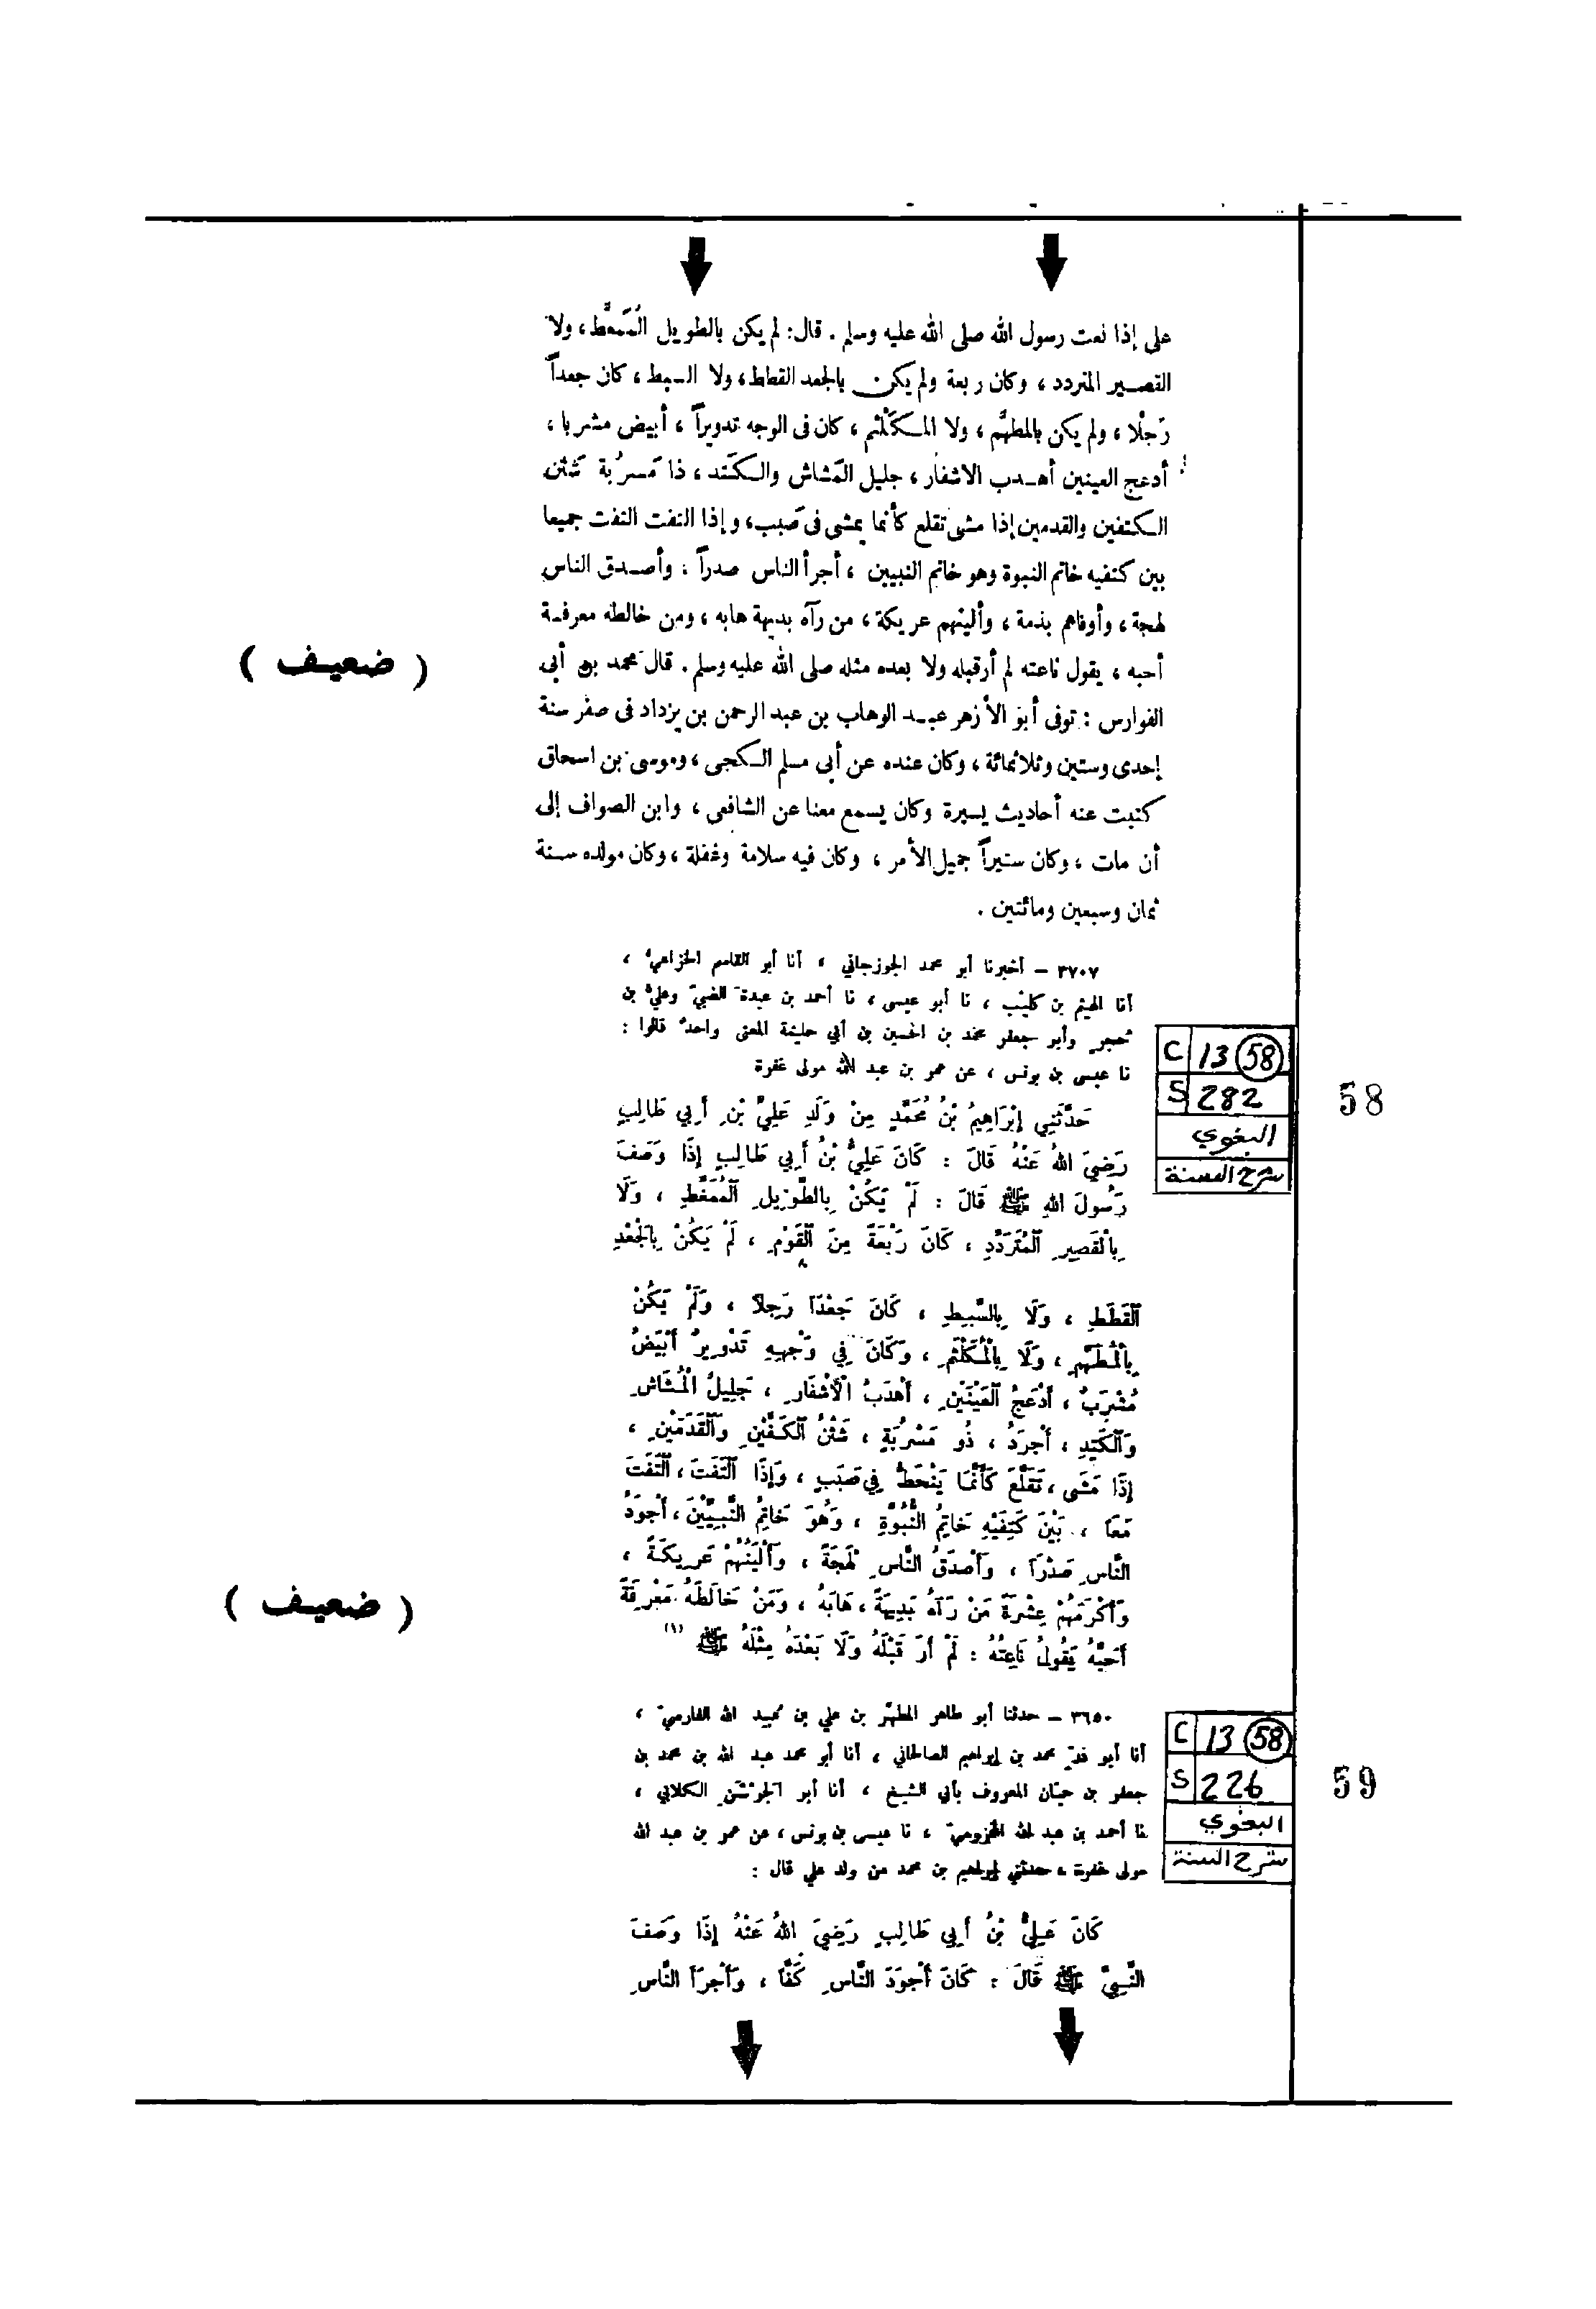 على إذا نعت رسول الله صلى الله عليه وسلم . قال : لم يكن بالطويل المُمَّغَط ، ولا
القصير المتردد ، وكان ربعة ولم يكن بالجعد القطط ، ولا السبط ، كان جعداً
رَجْلا ، ولم يكن بالمطهَّم ، ولا المكَلْثم ، كان فى الوجه تدويراً ، أبيض مشربا ،
أدعج العينين أهدب الاشفار ، جليل المَشاش والكَتد ، ذا مَسرُبة شثن
الكتفين والقدمين إذا مشى تقلع كأنما يمشى فى صَبب ، وإذا التفت التفت جميعا
بين كتفيه خاتم النبوة وهو خاتم النبيين ، أجرأ الناس صدراً ، وأصدق الناس
لهجة ، وأوفاهم بذمة ، وألينهم عريكة ، من رآه بديهة هابه ، ومن خالطه معرفة
( ضعيف )
أحبه ، يقول ناعته لم أر قبله ولا بعده مثله صلى الله عليه وسلم . قال محمد بن أبى
الفوارس : توفى أبو الأزهر عبد الوهاب بن عبد الرحمن بن يزداد فى صفر سنة
إحدى وستين وثلاثمائة ، وكان عنده عن أبى مسلم الكجى ، وموسى بن اسحاق
كتبت عنه أحاديث يسيرة وكان يسمع معنا عن الشافعى ، وابن الصواف إلى
أن مات ، وكان ستيراً جميل الأمر ، وكان فيه سلامة وغفلة ، وكان مولده سنة
ثمان وسبعين ومائتين .
٣٧٠٧ – أخبرنا أبو محمد الجوزجاني ، أنا أبو القاسم الخزاعيُّ ،
أنا الهيثم بن كليْب ، نا أبو عيسى ، نا أحمد بن عبدة الضبيّ وعليُّ بن
حُجرٍ وأبو جعفر محمد بن الحسين بن أبي حليمة المعنى واحدٌ قالوا :
نا عيسى بن يونس ، عن عمر بن عبد الله مولى غفرة
C 13 58
S 282
البغوي
شرح السنة
58
حَدَّثَنِي إبْرَاهِيمُ بْنُ مُحَمَّدٍ مِنْ وَلَدِ عَلِيِّ بْنِ أَبِي طَالِبٍ
رَضِيَ اللهُ عَنْهُ قَالَ : كَانَ عَلِيُّ بْنُ أَبِي طَالِبٍ إذَا وَصَفَ
رَسُولَ اللهِ ﷺ قَالَ : لَمْ يَكُنْ بِالطَّوِيلِ الْمُمَغَّطِ ، وَلَا
بِالْقَصِيرِ الْمُتَرَدِّدِ ، كَانَ رَبْعَةً مِنَ الْقَوْمِ ، لَمْ يَكُنْ بِالْجَعْدِ
الْقَطَطِ ، وَلَا بِالسَّبِطِ ، كَانَ جَعْدَاً رَجِلاً ، وَلَمْ يَكُنْ
بِالْمُطَهَّمِ ، وَلَا بِالْمُكَلْثَمِ ، وَكَانَ فِي وَجْهِهِ تَدْوِيرٌ أَبْيَضُ
مُشْرَبٌ ، أَدْعَجُ الْعَيْنَيْنِ ، أَهْدَبُ الْأَشْفَارِ ، جَلِيلُ الْمُشَاشِ
وَالْكَتِدِ ، أَجْرَدُ ، ذُو مَسْرُبَةٍ ، شَثْنُ الْكَفَّيْنِ وَالْقَدَمَيْنِ ،
إذَا مَشَى ، تَقَلَّعَ كَأَنَّمَا يَنْحَطُّ فِي صَبَبٍ ، وَإِذَا الْتَفَتَ ، الْتَفَتَ
مَعَاً ، بَيْنَ كَتِفَيْهِ خَاتِمُ النُّبُوَّةِ ، وَهُوَ خَاتِمُ النَّبِيِّيْنَ ، أَجْوَدُ
النَّاسِ صَدْرَاً ، وَأَصْدَقُ النَّاسِ لَهْجَةً ، وَأَلْيَنُهُمْ عَرِيكَةً ،
( ضعيف )
وَأَكْرَمُهُمْ عِشْرَةً مَنْ رَآهُ بَدِيهَةً ، هَابَهُ ، وَمَنْ خَالَطَهُ مَعْرِفَةً
أَحَبَّهُ يَقُولُ نَاعِتُهُ : لَمْ أَرَ قَبْلَهُ وَلَا بَعْدَهُ مِثْلَهُ ﷺ (١)
٣٦٥٠ – حدثنا أبو طاهر المطهّر بن علي بن عُبيد الله الفارسيّ ،
أنا أبو ذرّ محمد بن إبراهيم الصالحاني ، أنا أبو محمد عبد الله بن محمد بن
جعفر بن حيّان المعروف بأبي الشيخ ، أنا أبو الحَرْشَن الكلابي ،
نا أحمد بن عبد الله المخزوميّ ، نا عيسى بن يونس ، عن عمر بن عبد الله
مولى غفرة ، حدثني إبراهيم بن محمد من ولد علي قال :
C 13 58
S 226
البغوي
شرح السنة
59
كَانَ عَلِيُّ بْنُ أَبِي طَالِبٍ رَضِيَ اللهُ عَنْهُ إذَا وَصَفَ
النَّبِيَّ ﷺ قَالَ : كَانَ أَجْوَدَ النَّاسِ كَفَّاً ، وَأَجْرَأَ النَّاسِ